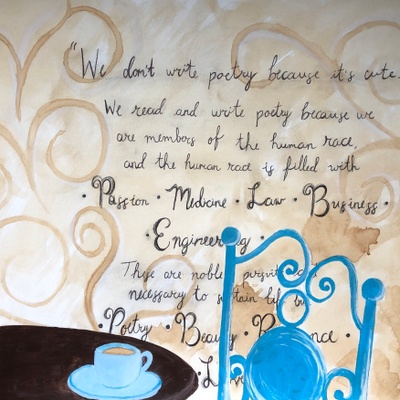 "We don't write poetry because it's cute.
We read and write poetry because we
are members of the human race,
and the human race is filled with
· Passion · Medicine · Law · Business ·
· Engineering ·
These are noble
necessary to
· Poetry · Beauty ·